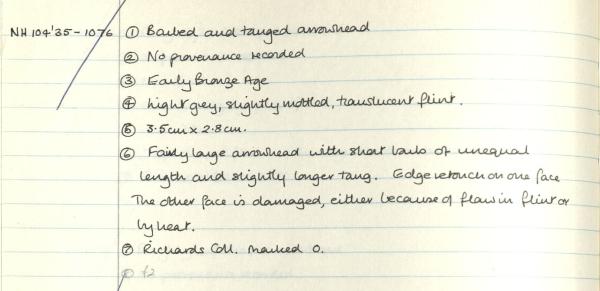 NH 104'35-1076 ① Barbed and tanged arrowhead
② No provenance recorded
③ Early Bronze Age
④ Light grey, slightly mottled, translucent flint.
⑤ 3.5cm x 2.8cm.
⑥ Fairly large arrowhead with short barbs of unequal
length and slightly longer tang. Edge retouch on one face
The other face is damaged, either because of flaw in flint or
by heat.
⑦ Richards Coll. Marked O.
⑧ f2